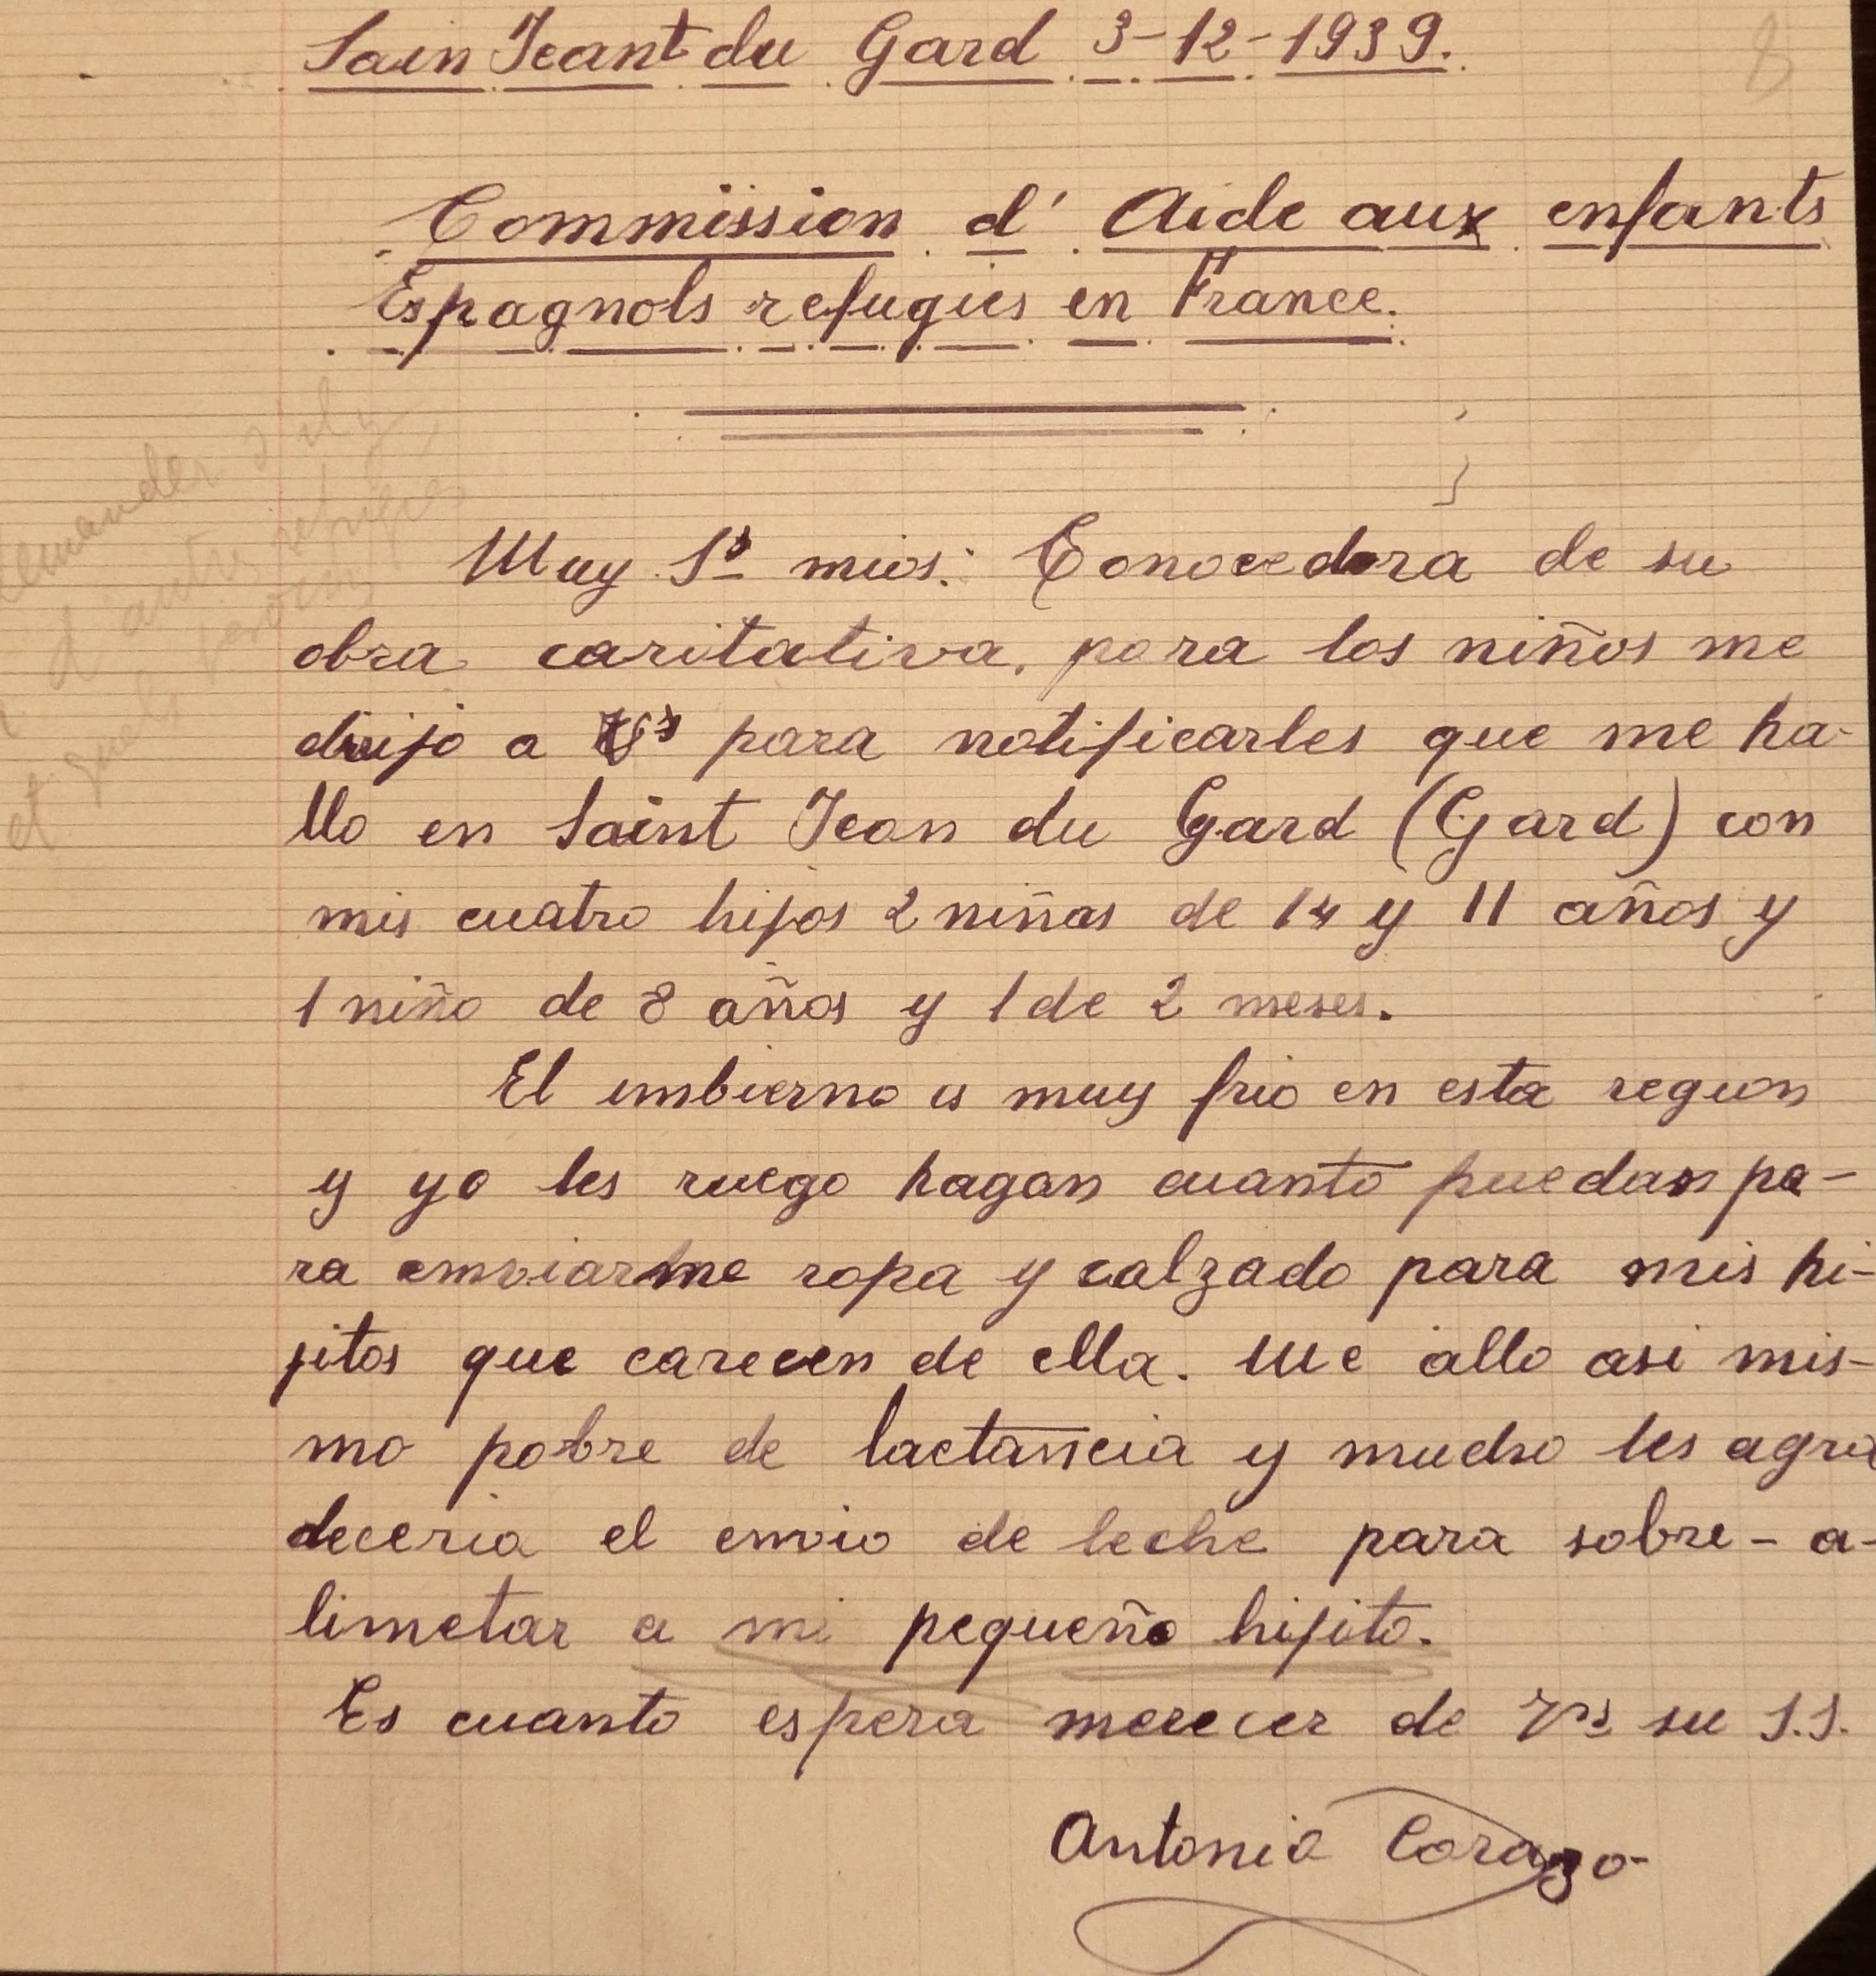 Sain Jeant du Gard 3-12-1939.
Commission d' Aide aux enfants
Espagnols refugies en France.
Muy Srs mios: Conocedora de su
obra caritativa, para los niños me
dirijo a Vs para notificarles que me ha-
llo en Saint Jean du Gard (Gard) con
mis cuatro hijos 2 niñas de 14 y 11 años y
1 niño de 8 años y 1 de 2 meses.
El imbierno es muy frio en esta region
y yo les ruego hagan cuanto puedan pa-
ra emviarme ropa y calzado para mis hi-
jitos que carecen de ella. Me allo asi mis-
mo pobre de lactancia y mucho les agra
deceria el envio de leche para sobre-a-
limetar a mi pequeño hijito.
Es cuanto espera merecer de Vds su S.S.
Antonia Corazo
demander s'il y
d'autres refugies
et quels